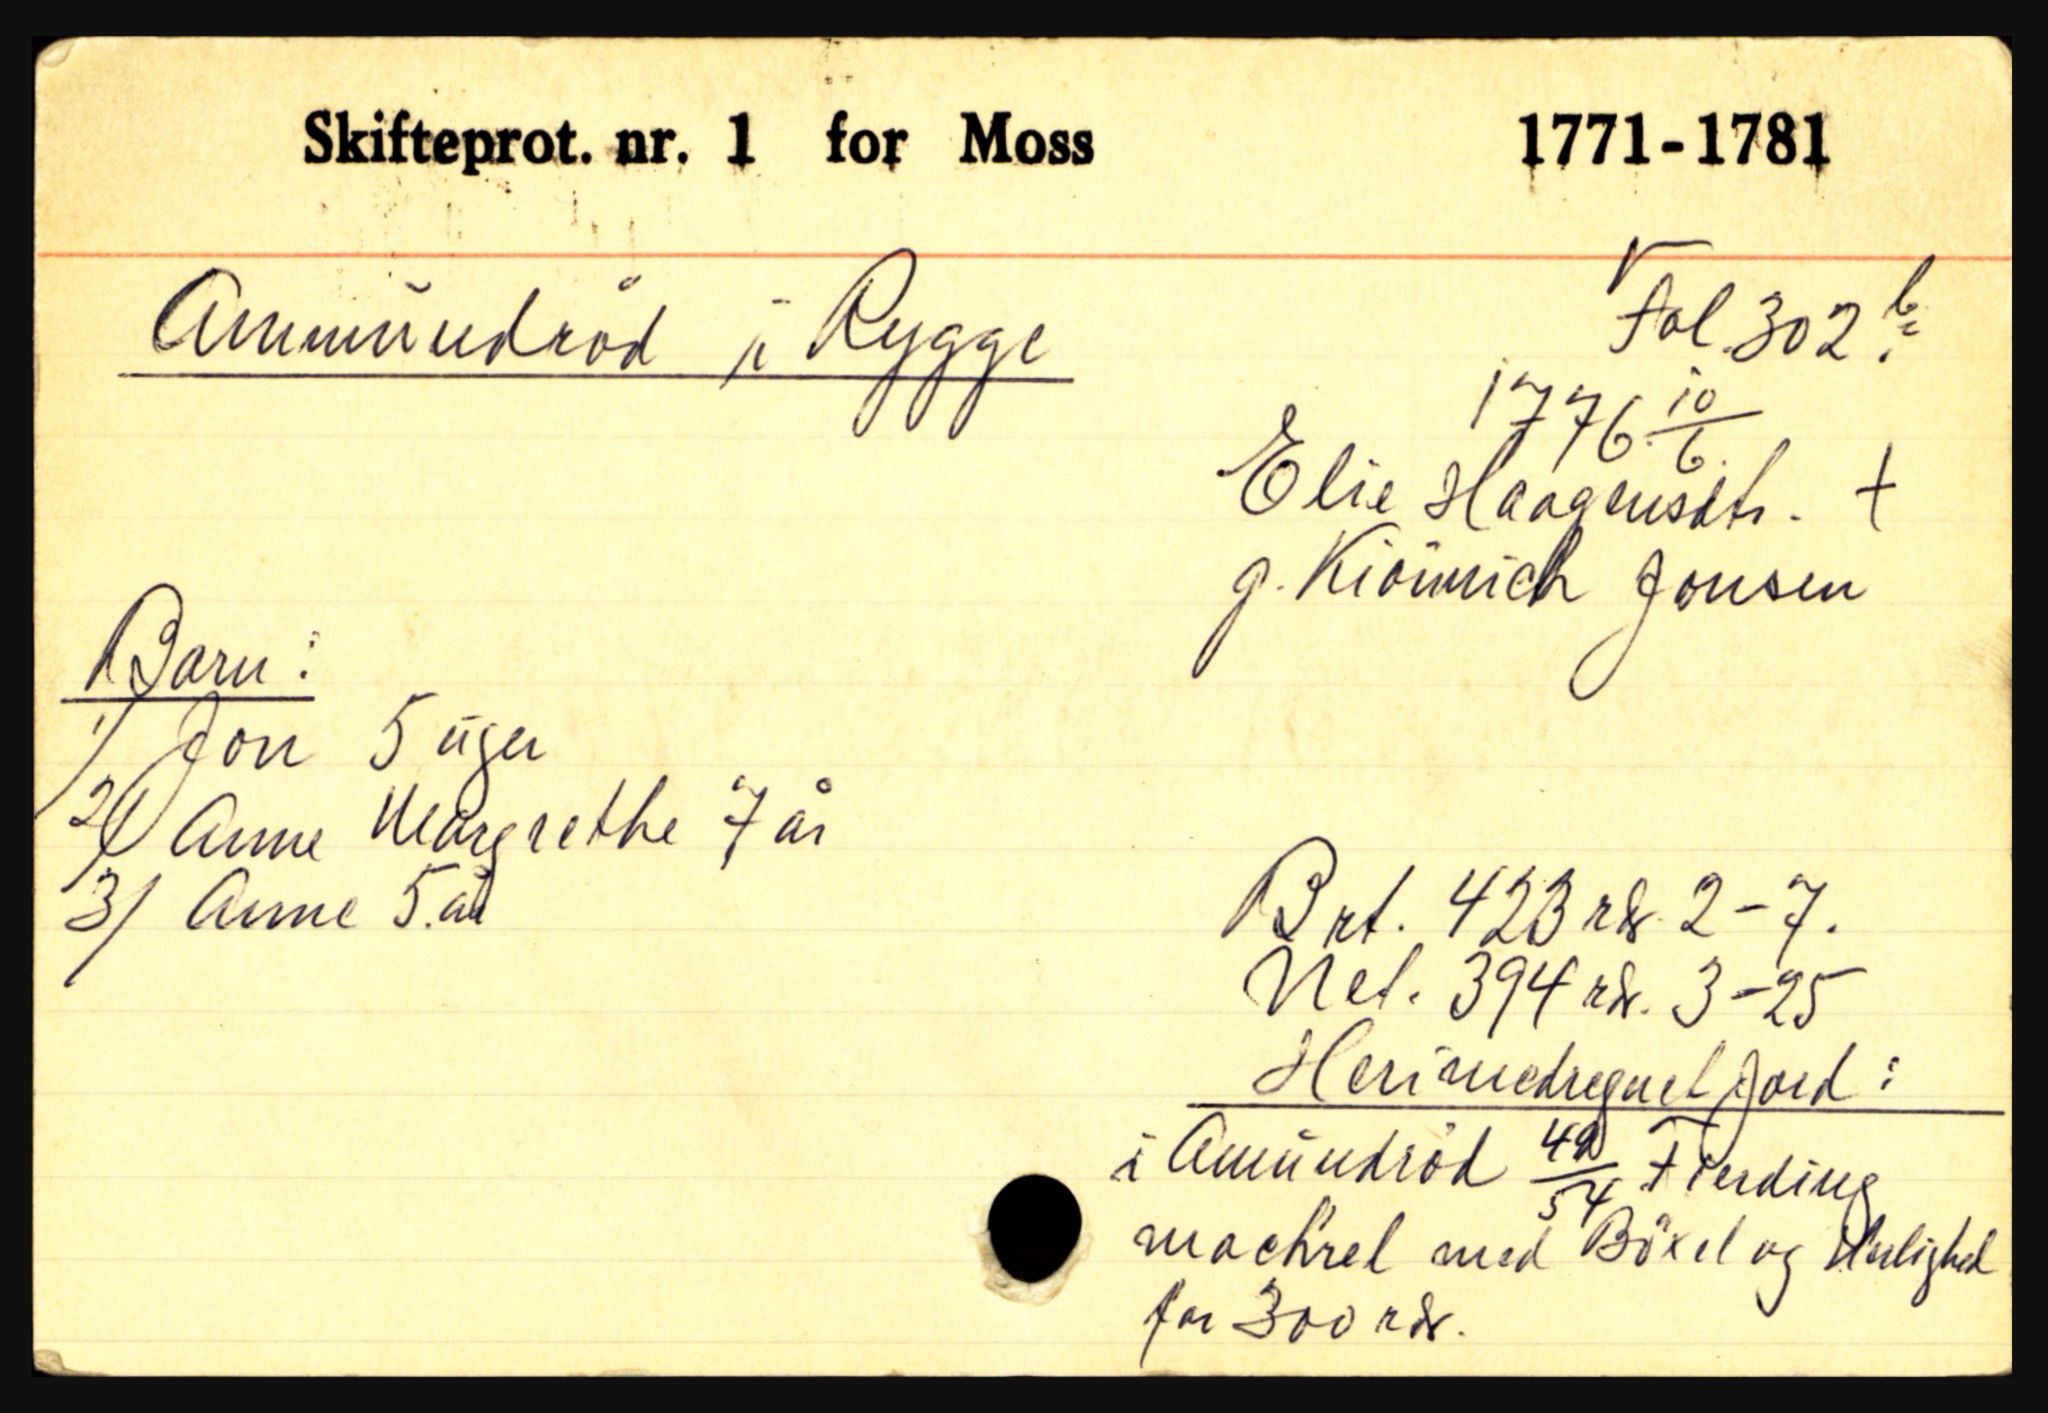 Skifteprot. nr. 1 for Moss 1771-1781
Ammundröd i Rygge
Fol. 302 b
1776 10/6.
Elie Haagensdtr. +
g. Jonsen
Barn:
1) Jon 5 uger
2) Anne Margrethe 7 år
3) Anne 5. år
Brt. 423 rdr. 2-7.
Net. 394 rdr. 3-25
Herimedregnet Jord:
i Amundröd 49/54 Fierding
mackrel med Böxel og Herlighed
for 300 rdr.